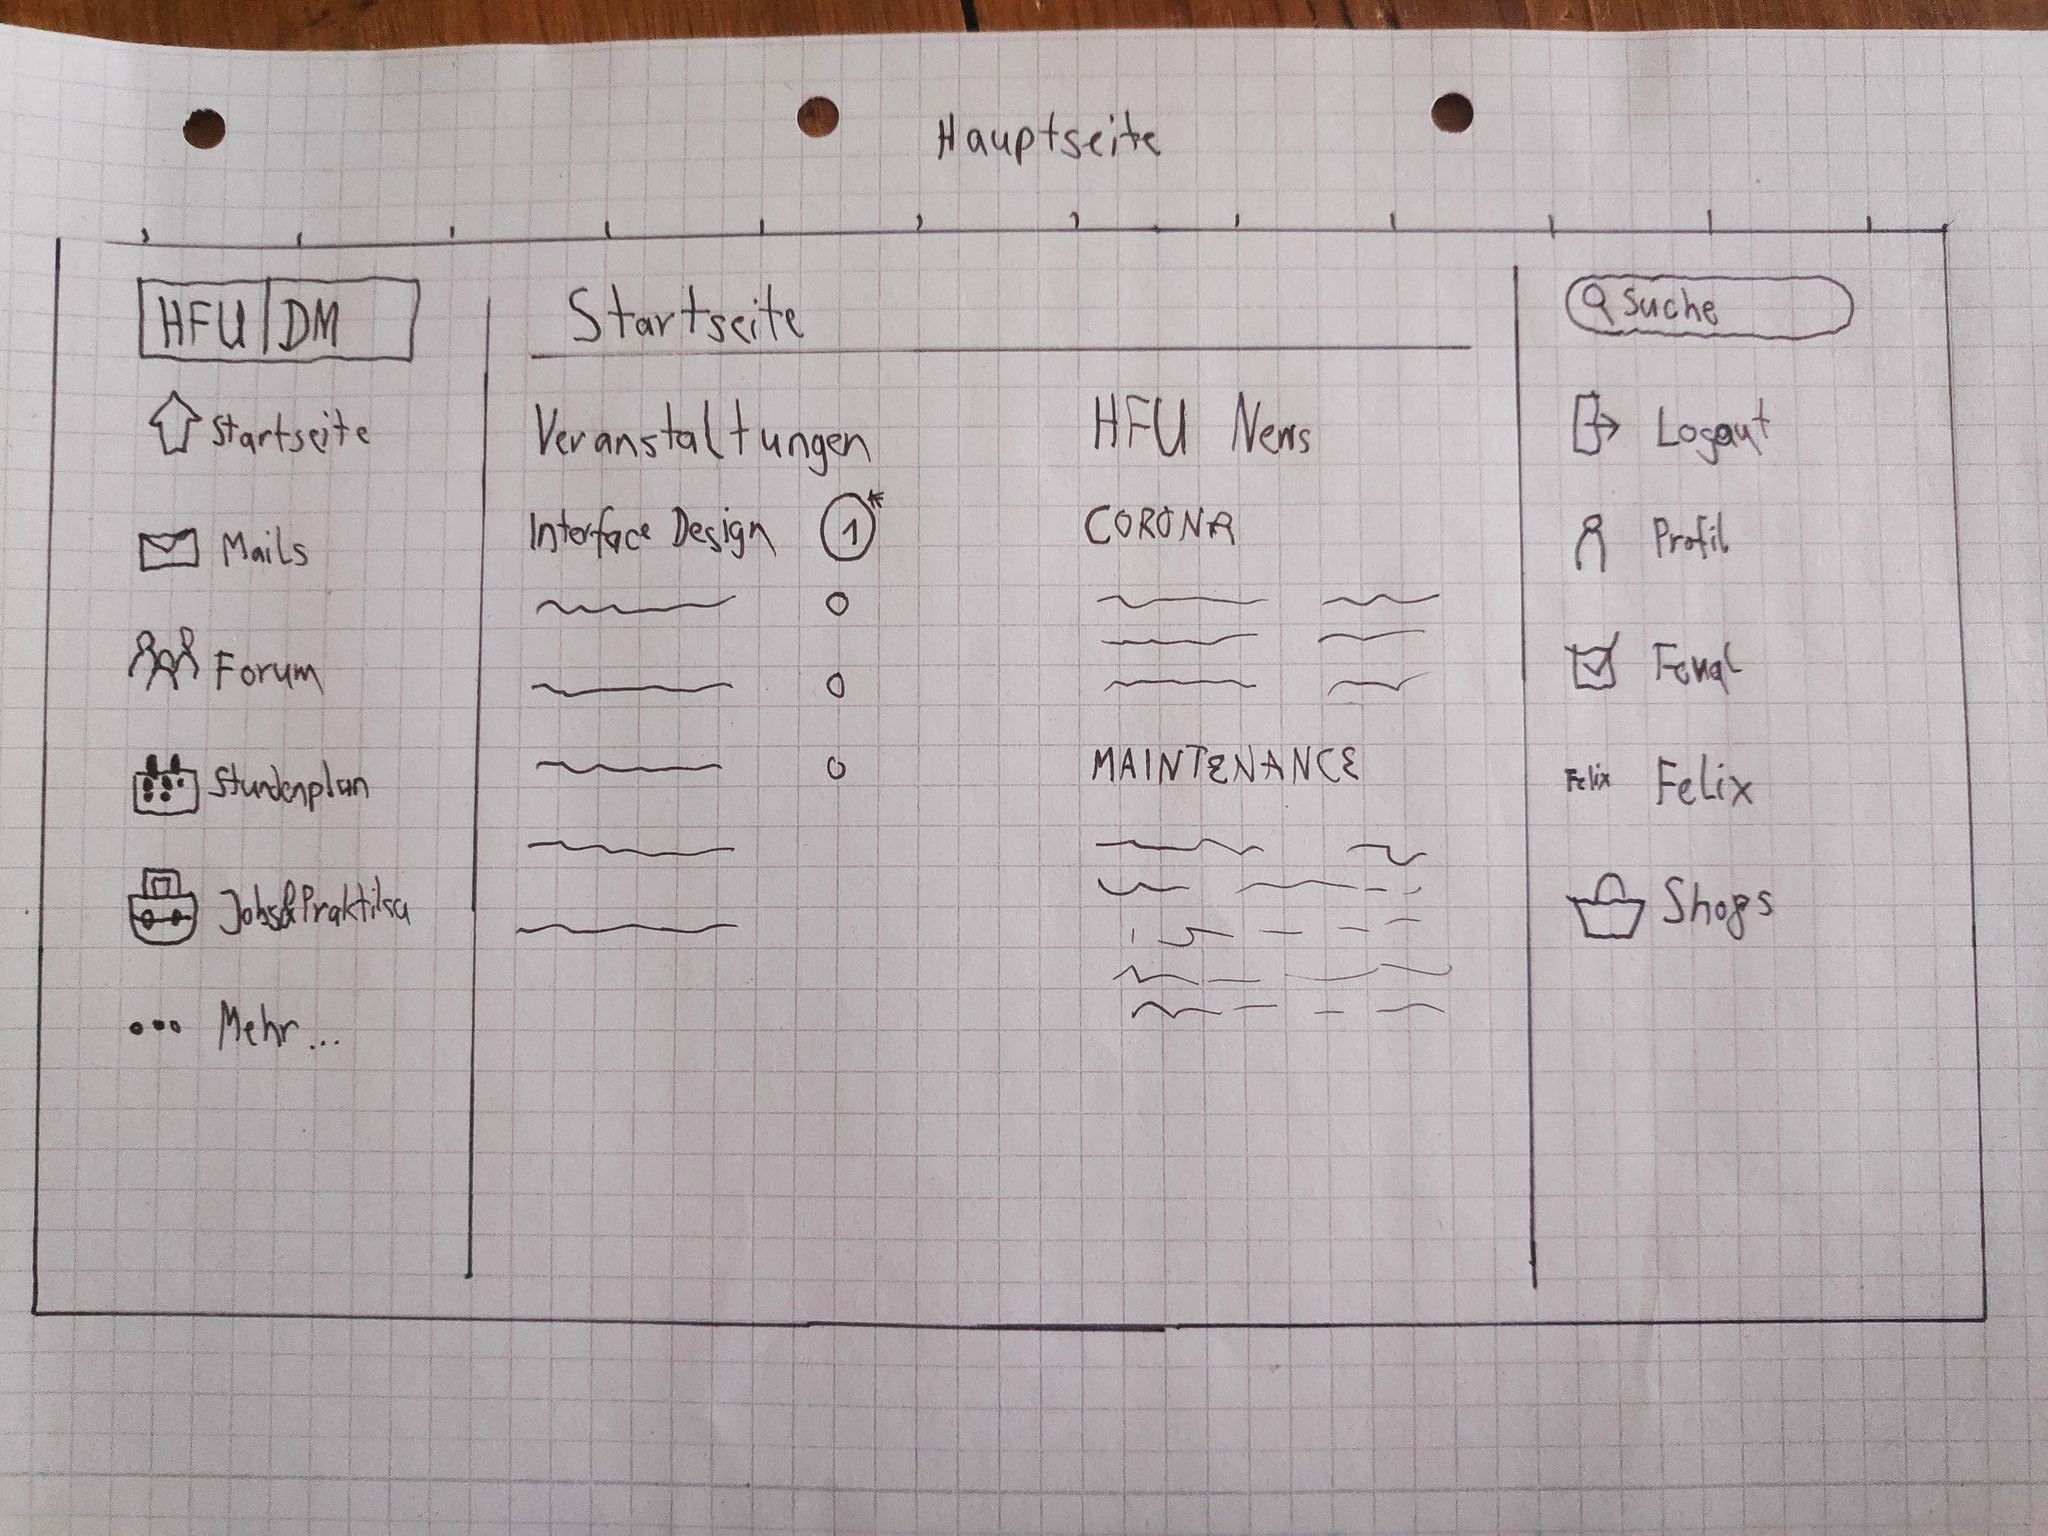 Hauptseite
HFU|DM
Startseite
Mails
Forum
Stundenplan
Jobs&Praktika
Mehr...
Startseite
Veranstaltungen
Interface Design 1
HFU News
CORONA
MAINTENANCE
Suche
Logout
Profil
Felix Felix
Shops